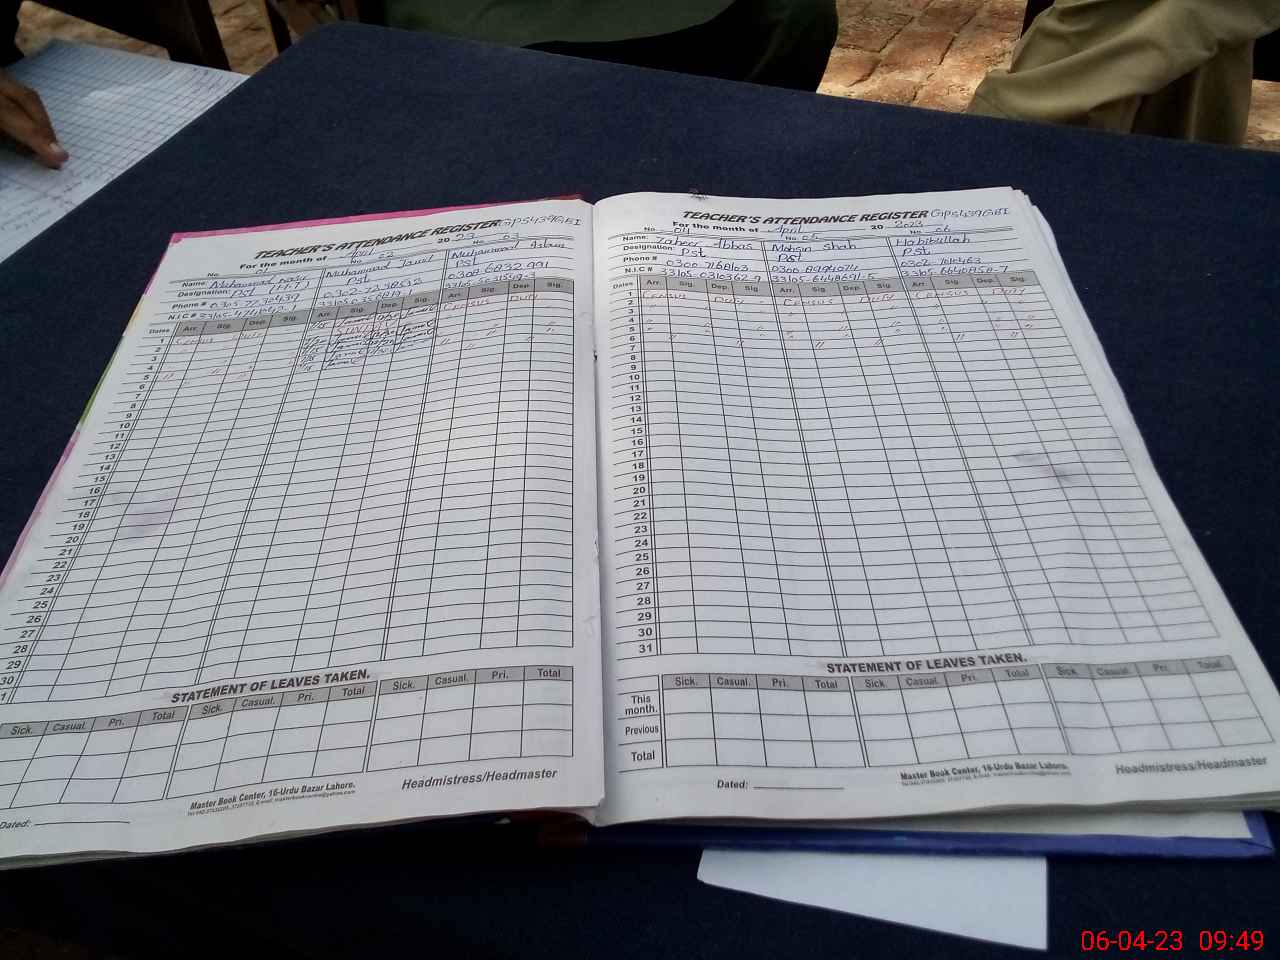 TEACHER'S ATTENDANCE REGISTER GPS439GBI
For the month of April 2023
No. 01 No 02 No 03
Name: Muhammad Muhammad Jamil Muhammad Aslam
Designation: PST PST PST
Phone # 0305-7730439 0302-7238532 0308 6832 991
N.I.C #
Dates Arr. Sig. Dep. Sig. Arr. Sig. Dep. Sig. Arr. Sig. Dep. Sig.
1 Census Duty Census Duty
2
3
4
5
6
7
8
9
10
11
12
13
14
15
16
17
18
19
20
21
22
23
24
25
26
27
28
29
30
1
STATEMENT OF LEAVES TAKEN.
Sick. Casual. Pri. Total Sick. Casual. Pri. Total Sick. Casual. Pri. Total
Master Book Center, 16-Urdu Bazar Lahore.
Headmistress/Headmaster
Dated:
TEACHER'S ATTENDANCE REGISTER GPS439GBI
For the month of April 2023
No. 04 No 05 No 06
Name: Zaheer Abbas Mohsin Shah Habibullah
Designation: PST PST PST
Phone # 0300 7168163 0300 8994074 0302-7010463
N.I.C # 33105-0310362-9 33105-6448691-5 33105-6640858-7
Dates Arr. Sig. Dep. Sig. Arr. Sig. Dep. Sig. Arr. Sig. Dep. Sig.
1 Census Duty Census Duty Census Duty
2
3
4
5
6
7
8
9
10
11
12
13
14
15
16
17
18
19
20
21
22
23
24
25
26
27
28
29
30
31
STATEMENT OF LEAVES TAKEN.
Sick. Casual. Pri. Total Sick. Casual. Pri. Total Sick. Casual. Pri. Total
This month.
Previous
Total
Dated:
Master Book Center, 16-Urdu Bazar Lahore.
Headmistress/Headmaster
06-04-23 09:49